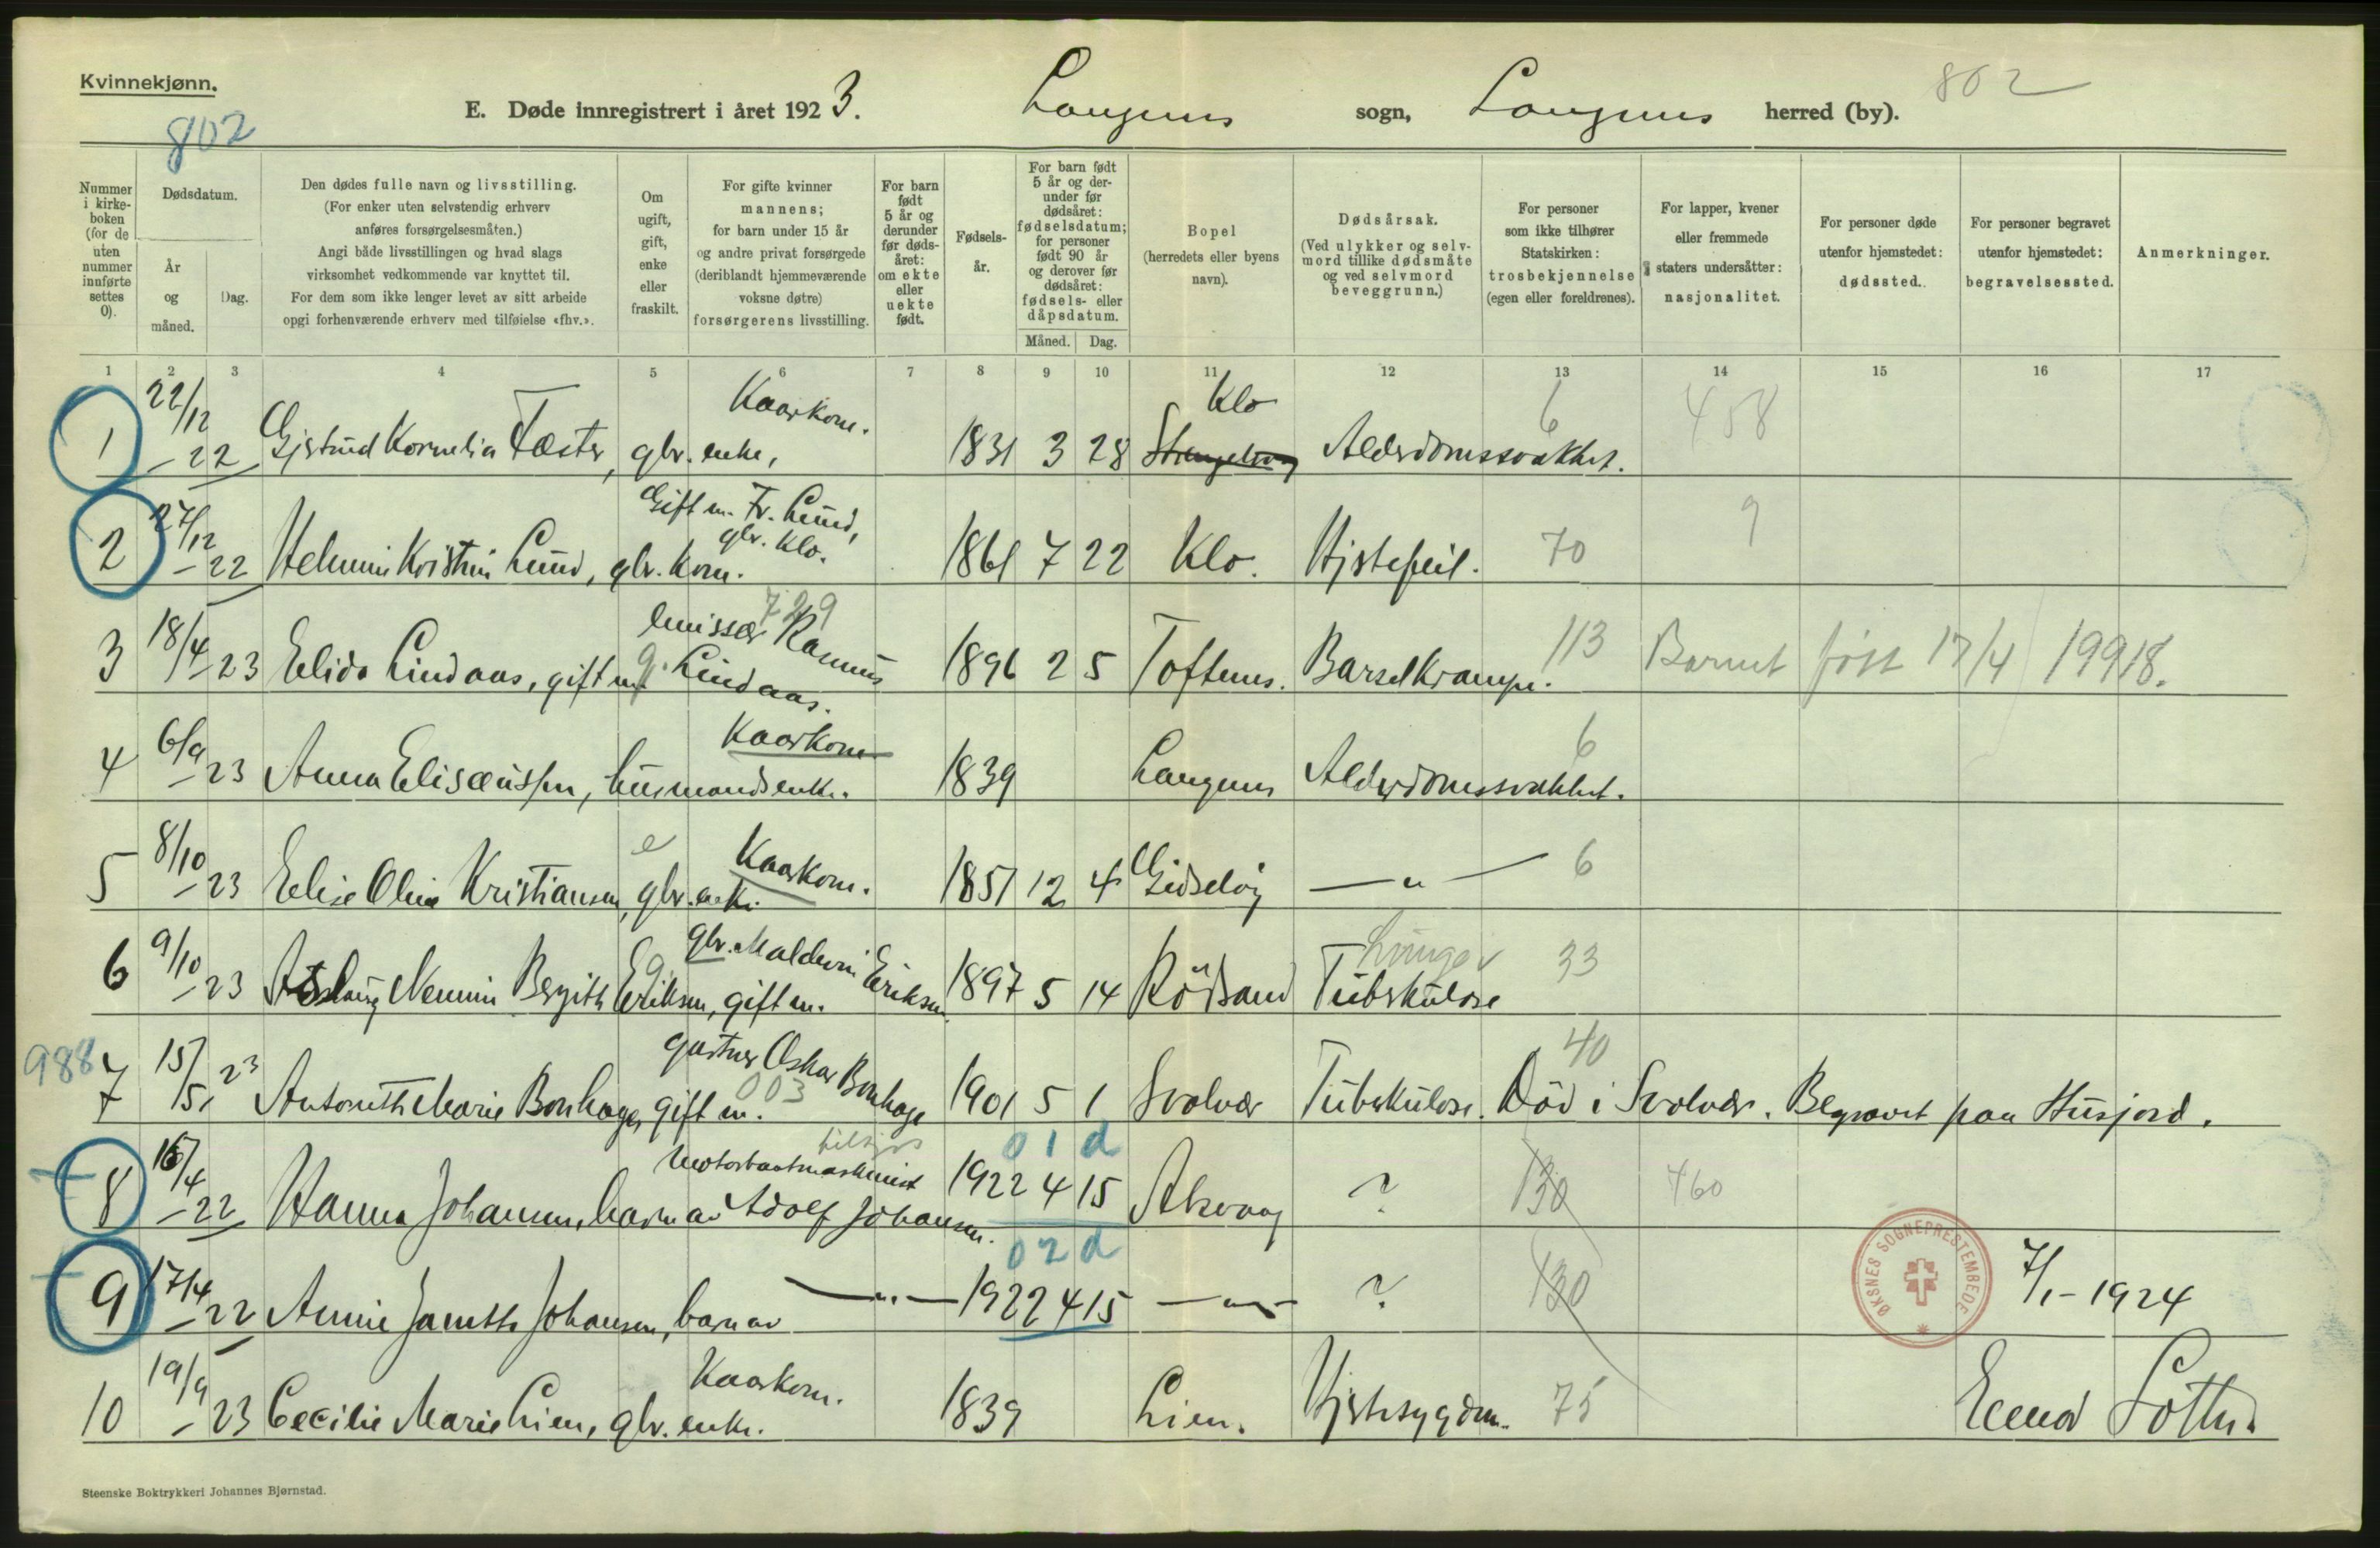 Kvinnekjønn.
802
E. Døde innregistrert i året 1923. Langenes sogn, Langenes herred (by). 802
Nummer i kirkeboken (for de uten nummer innførte settes 0).
Dødsdatum.
År og måned.
Dag.
Den dødes fulle navn og livsstilling.
(For enker uten selvstendig erhverv
anføres forsørgelsesmåten.)
Angi både livsstillingen og hvad slags
virksomhet vedkommende var knyttet til.
For dem som ikke lenger levet av sitt arbeide
opgi forhenværende erhverv med tilføielse «fhv.».
Om ugift, gift, enke eller fraskilt.
For gifte kvinner
mannens;
for barn under 15 år
og andre privat forsørgede
(deriblandt hjemmeværende
voksne døtre)
forsørgerens livsstilling.
For barn født 5 år og derunder før dødsåret: om ekte eller uekte født.
Fødselsår.
For barn født 5 år og derunder før dødsåret: fødselsdatum; for personer født 90 år og derover før dødsåret: fødsels- eller dåpsdatum.
Måned. Dag.
Bopel
(herredets eller byens
navn).
Dødsårsak.
(Ved ulykker og selvmord tillike dødsmåte og ved selvmord beveggrunn.)
For personer
som ikke tilhører
Statskirken:
trosbekjennelse
(egen eller foreldrenes).
For lapper, kvener
eller fremmede
staters undersåtter:
nasjonalitet.
For personer døde
utenfor hjemstedet:
dødssted.
For personer begravet
utenfor hjemstedet:
begravelsessted.
Anmerkninger.
1 2 3 4 5 6 7 8 9 10 11 12 13 14 15 16 17
1 22/12 - 22 Gjertrud Kornelia Fæster, gbr. enke, Kaarkone. 1831 3 28 Klo Alderdomssvakhet. 6 458
2 27/12 - 22 Helmine Kristine Lund, gbr. kone. Gift m. Fr. Lund, gbr. Klo. 1861 7 22 Klo. Hjertefeil. 70 9
3 18/4 - 23 Elida Lindaas, gift m. g. emissær Rasmus Lindaas. 729 1896 2 5 Toftenes. Barselkrampe. 113 Barnet født 17/4 19918.
4 6/9 - 23 Anna Elisæussen, husmandsenke. Kaarkone 1839 Langenes Alderdomssvakhet. 6
5 8/10 - 23 Elise Oline Kristiansen, gbr. enke. e Kaarkone. 1851 12 4 — " — 6
6 9/10 - 23 Aslaug Nemmine Bergithe Eriksen, gift m. g gbr. Maldevin Eriksen. 1897 5 14 Rödsand Lunge Tuberkulose 33
988 7 15/5 23 Antonette Marie Bonhage, gift m. gartner Oskar Bonhage 003 1901 5 1 Svolvær Tuberkulose. 40 Död i Svolvær. Begravet paa Husjord.
8 16/4 - 22 Hanna Johansen, barn av Motorbaatmaskinist Adolf Johansen. 01d 1922 4 15 Alsvaag ? 130 460
9 17/4 - 22 Annie Janette Johansen, barn av — " — 02d 1922 4 15 — " — ? 130
10 19/9 - 23 Cecilie Marie Lien, gbr. enke. Kaarkone. 1839 Lien. Hjertesygdom. 75
ØKSNES SOGNEPRESTEMBEDE
7/1 - 1924
Steenske Boktrykkeri Johannes Bjørnstad.